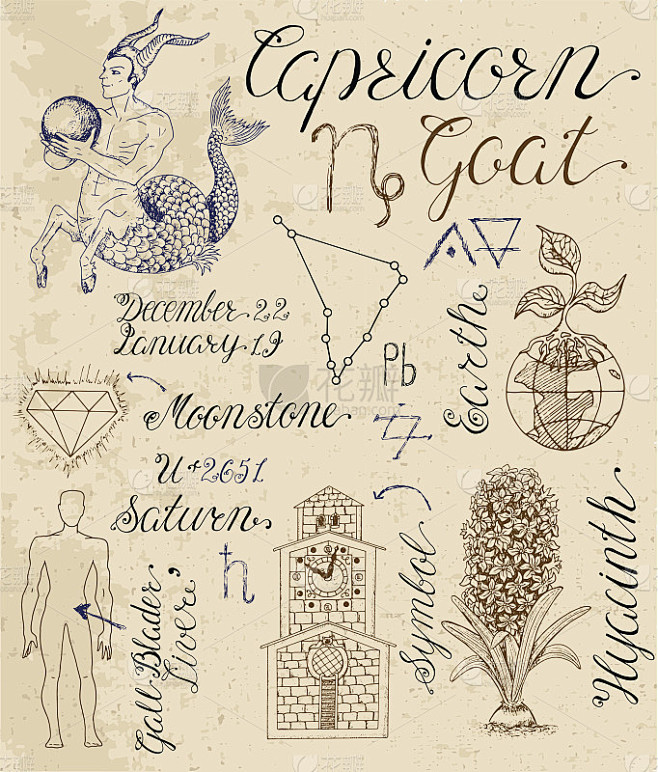 Capricorn
Goat
December 22
January 19
Pb
Earthe
花瓣
Moonstone
U+2651
Saturn
Gall Blader,
Livere
Symbol
Hyacinth